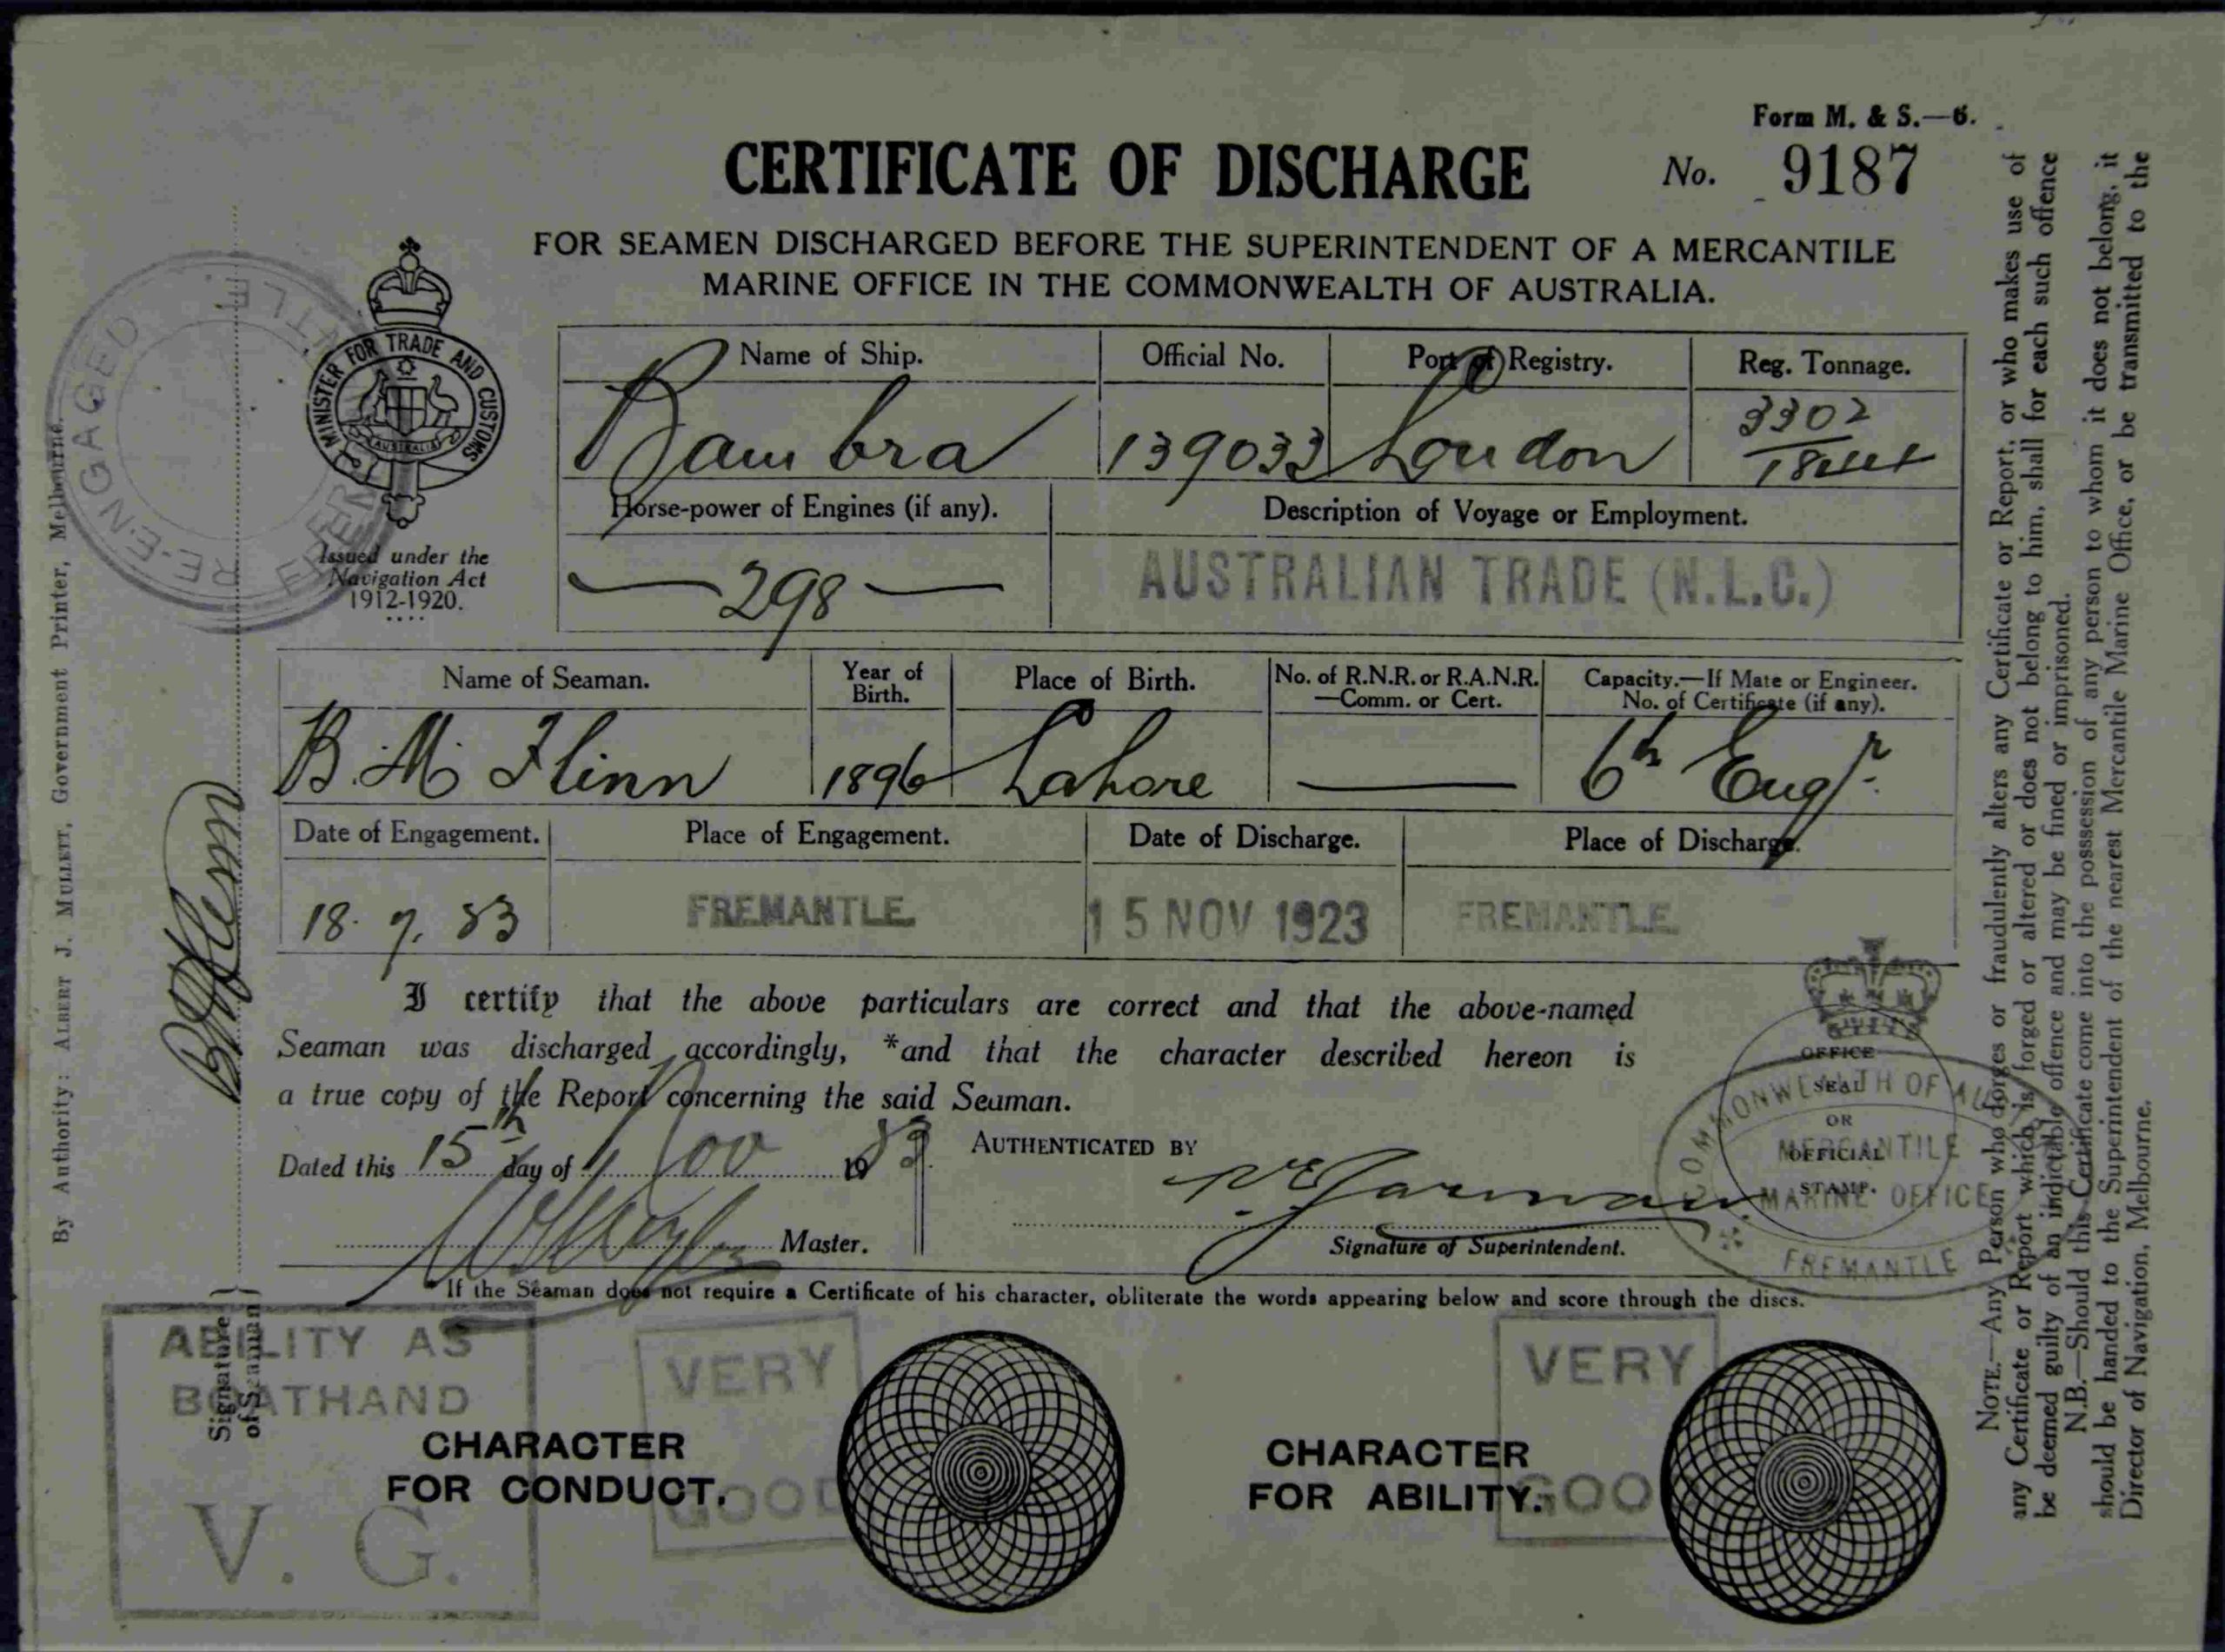 Form M. & S.—6.
CERTIFICATE OF DISCHARGE
No. 9187
FOR SEAMEN DISCHARGED BEFORE THE SUPERINTENDENT OF A MERCANTILE
MARINE OFFICE IN THE COMMONWEALTH OF AUSTRALIA.
MINISTER FOR TRADE AND CUSTOMS
AUSTRALIA
Issued under the
Navigation Act
1912-1920.
RE-ENGAGED
Name of Ship. Official No. Port of Registry. Reg. Tonnage.
Bambra 139033 London 3302
Horse-power of Engines (if any). Description of Voyage or Employment.
298 AUSTRALIAN TRADE (N.L.C.)
Name of Seaman. Year of Birth. Place of Birth. No. of R.N.R. or R.A.N.R.—Comm. or Cert. Capacity.—If Mate or Engineer. No. of Certificate (if any).
B. M. Flinn 1896 Lahore — 6th Engr.
Date of Engagement. Place of Engagement. Date of Discharge. Place of Discharge.
18. 7. 23 FREMANTLE 15 NOV 1923 FREMANTLE
I certify that the above particulars are correct and that the above-named
Seaman was discharged accordingly, *and that the character described hereon is
a true copy of the Report concerning the said Seaman.
Dated this 15th day of Nov 1923.
AUTHENTICATED BY
Master.
Signature of Superintendent.
OFFICE
SEAL
OR
OFFICIAL
STAMP.
COMMONWEALTH OF AU
MERCANTILE
MARINE OFFICE
FREMANTLE
* If the Seaman does not require a Certificate of his character, obliterate the words appearing below and score through the discs.
ABILITY AS
BOATHAND
V. G.
VERY
GOOD
CHARACTER
FOR CONDUCT.
VERY
GOO
CHARACTER
FOR ABILITY.
Signature
of Seaman
By Authority: ALBERT J. MULLETT, Government Printer, Melbourne.
NOTE.—Any Person who forges or fraudulently alters any Certificate or Report, or who makes use of
any Certificate or Report which is forged or altered or does not belong to him, shall for each such offence
be deemed guilty of an indictable offence and may be fined or imprisoned.
N.B.—Should this Certificate come into the possession of any person to whom it does not belong, it
should be handed to the Superintendent of the nearest Mercantile Marine Office, or be transmitted to the
Director of Navigation, Melbourne.